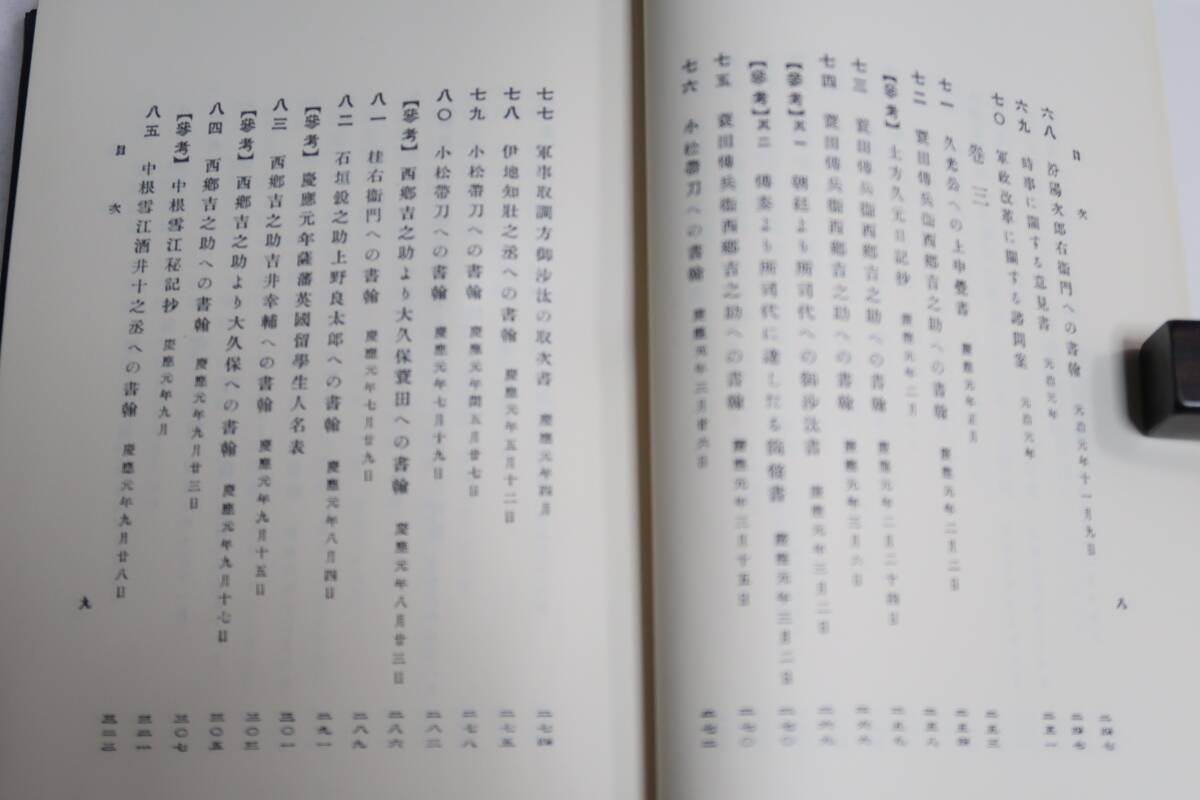 目次
六八 汾陽次郎右衞門への書翰 元治元年十一月九日 二四七
六九 時事に關する意見書 元治元年 二四七
七〇 軍政改革に關する諮問案 元治元年 二五一
卷三
七一 久光公への上申覺書 慶應元年正月
七二 蓑田傳兵衞西鄕吉之助への書翰 慶應元年二月二日
【參考】 土方久元日記抄 慶應元年二月
七三 蓑田傳兵衞西鄕吉之助への書翰 慶應元年二月二十四日
七四 蓑田傳兵衞西鄕吉之助への書翰 慶應元年三月六日
【參考】 其一 朝廷より所司代への御沙汰書 慶應元年三月二日
【參考】 其二 傳奏より所司代に達したる 慶應元年三月二日 二七〇
七五 蓑田傳兵衞西鄕吉之助への書翰 慶應元年三月 二七〇
七六 小松帶刀への書翰 慶應元年三月廿六日 二七二
八
七七 軍事取調方御沙汰の取次書 慶應元年四月 二七四
七八 伊地知壯之丞への書翰 慶應元年五月十二日 二七五
七九 小松帶刀への書翰 慶應元年閏五月廿七日 二七八
八〇 小松帶刀への書翰 慶應元年七月十九日 二八二
【參考】 西鄕吉之助より大久保蓑田への書翰 慶應元年八月廿三日 二八六
八一 桂右衞門への書翰 慶應元年七月廿九日 二八九
八二 石垣銳之助上野良太郎への書翰 慶應元年八月四日 二九一
【參考】 慶應元年薩藩英國留學生人名表 三〇一
八三 西鄕吉之助吉井幸輔への書翰 慶應元年九月十五日 三〇三
【參考】 西鄕吉之助より大久保への書翰 慶應元年九月十七日 三〇五
八四 西鄕吉之助への書翰 慶應元年九月廿三日 三〇七
【參考】 中根雪江秘記抄 慶應元年九月 三二一
八五 中根雪江酒井十之丞への書翰 慶應元年九月廿八日 三二三
目次
九